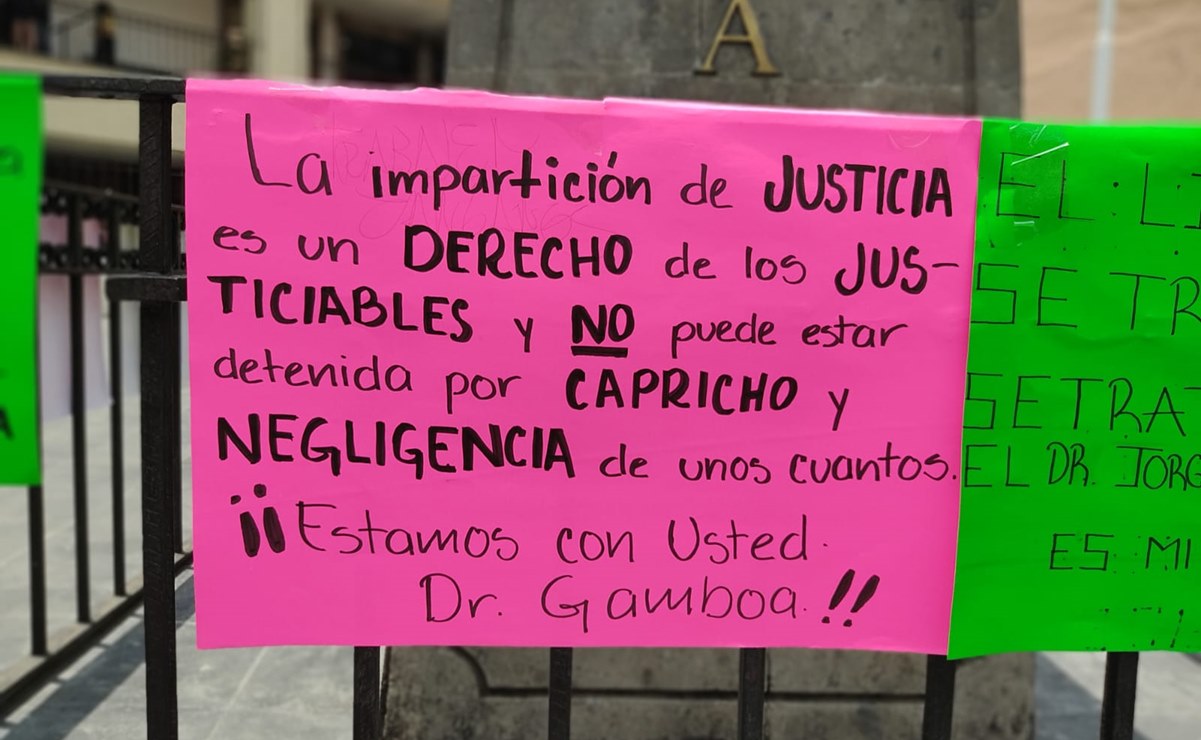 A
La impartición de JUSTICIA
es un DERECHO de los JUS-
TICIABLES y NO puede estar
detenida por CAPRICHO y
NEGLIGENCIA de unos cuantos.
¡¡Estamos con Usted.
Dr. Gamboa.!!
EL LI
SE TR
SE TRA
EL DR. JORG
ES MI
A